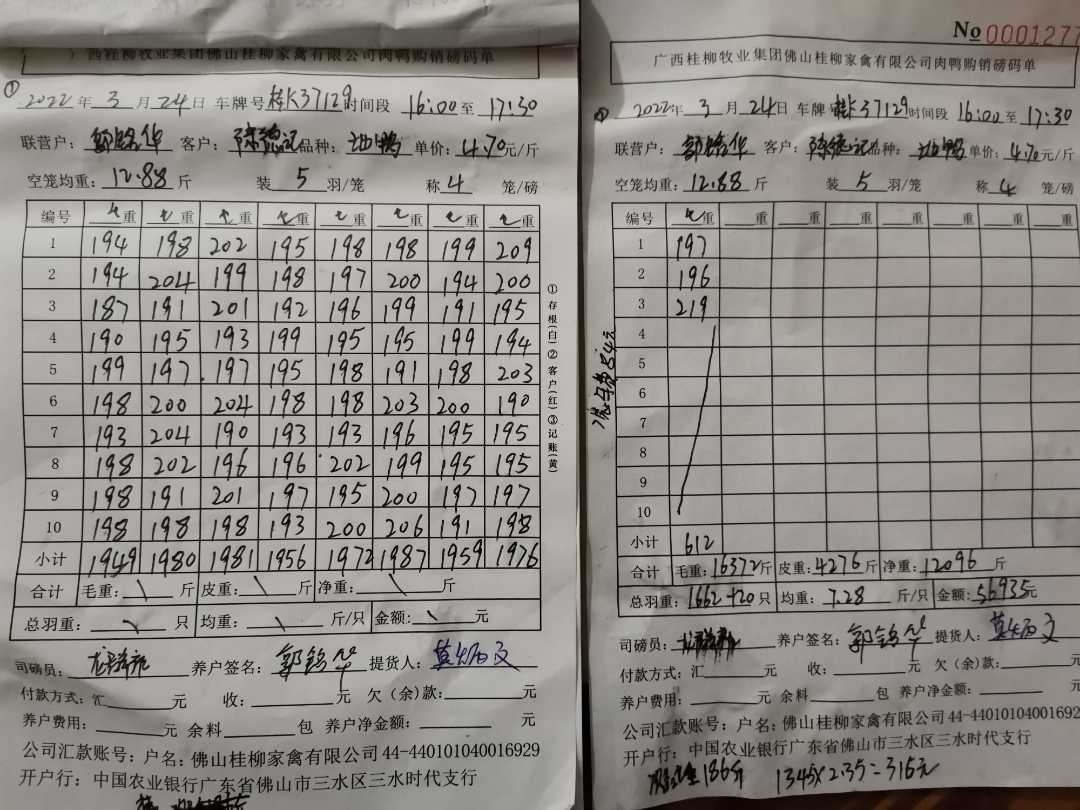 广西桂柳牧业集团佛山桂柳家禽有限公司肉鸭购销磅码单
① 2022年 3月24日 车牌号 桂K37129 时间段 16:00至 17:30
联营户： 郭铭华 客户： 陈德记 品种： 地鸭 单价：4.70元/斤
空笼均重：12.88斤 装 5 羽/笼 称 4 笼/磅
编号 毛重 毛重 毛重 毛重 毛重 毛重 毛重 毛重
1 194 198 202 195 198 198 199 209
2 194 204 199 198 197 200 194 200
3 187 191 201 192 196 199 191 195
4 190 195 193 199 195 195 199 194
5 199 197 197 195 198 191 198 203
6 198 200 204 198 198 203 200 190
7 193 204 190 193 193 196 195 195
8 198 202 196 196 202 199 195 195
9 198 191 201 197 195 200 197 197
10 198 198 198 193 200 206 191 198
小计 1949 1980 1981 1956 1972 1987 1959 1976
合计 毛重： 斤 皮重： 斤 净重： 斤
总羽重： 只 均重： 斤/只 金额： 元
司磅员： 养户签名： 郭铭华 提货人：
付款方式：汇 收： 元 欠（余）款： 元
养户费用： 元 余料 包 养户净金额： 元
公司汇款账号：户名：佛山桂柳家禽有限公司44-440101040016929
开户行：中国农业银行广东省佛山市三水区三水时代支行
①存根(白)②客户(红)③记账(黄)
No 0001277
广西桂柳牧业集团佛山桂柳家禽有限公司肉鸭购销磅码单
2022年 3月24日 车牌号 桂K37129 时间段 16:00至 17:30
联营户： 郭铭华 客户： 陈德记 品种： 地鸭 单价：4.70元/斤
空笼均重：12.88斤 装 5 羽/笼 称 4 笼/磅
编号 毛重 重 重 重 重 重 重 重
1 197
2 196
3 219
4
5
6
7
8
9
10
小计 612
合计 毛重：16372斤 皮重：4276斤 净重：12096斤
总羽重：1662+20只 均重：7.28斤/只 金额：56935元
司磅员： 养户签名： 郭铭华 提货人：
付款方式：汇 元 收： 元 欠（余）款： 元
养户费用： 元 余料 包 养户净金额： 元
公司汇款账号：户名：佛山桂柳家禽有限公司44-44010104001692
开户行：中国农业银行广东省佛山市三水区三水时代支行
186斤 1345×2.35=316元